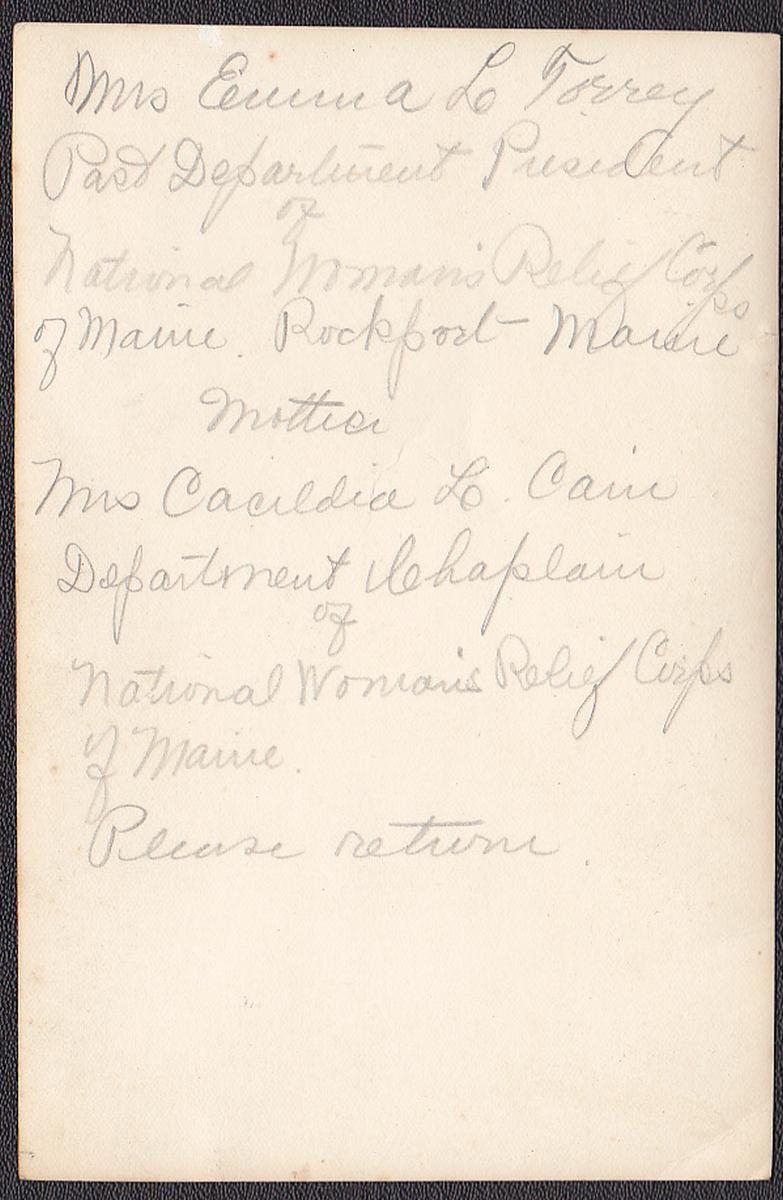 Mrs Emma L Torrey
Past Department President
of
National Woman's Relief Corps
of Maine. Rockport - Maine
Mother
Mrs Cacildia L. Cain
Department Chaplain
of
National Woman's Relief Corps
of Maine.
Please return.